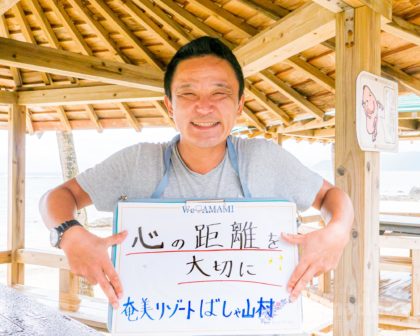 We♡AMAMI
心の距離を
大切に
奄美リゾートばしゃ山村